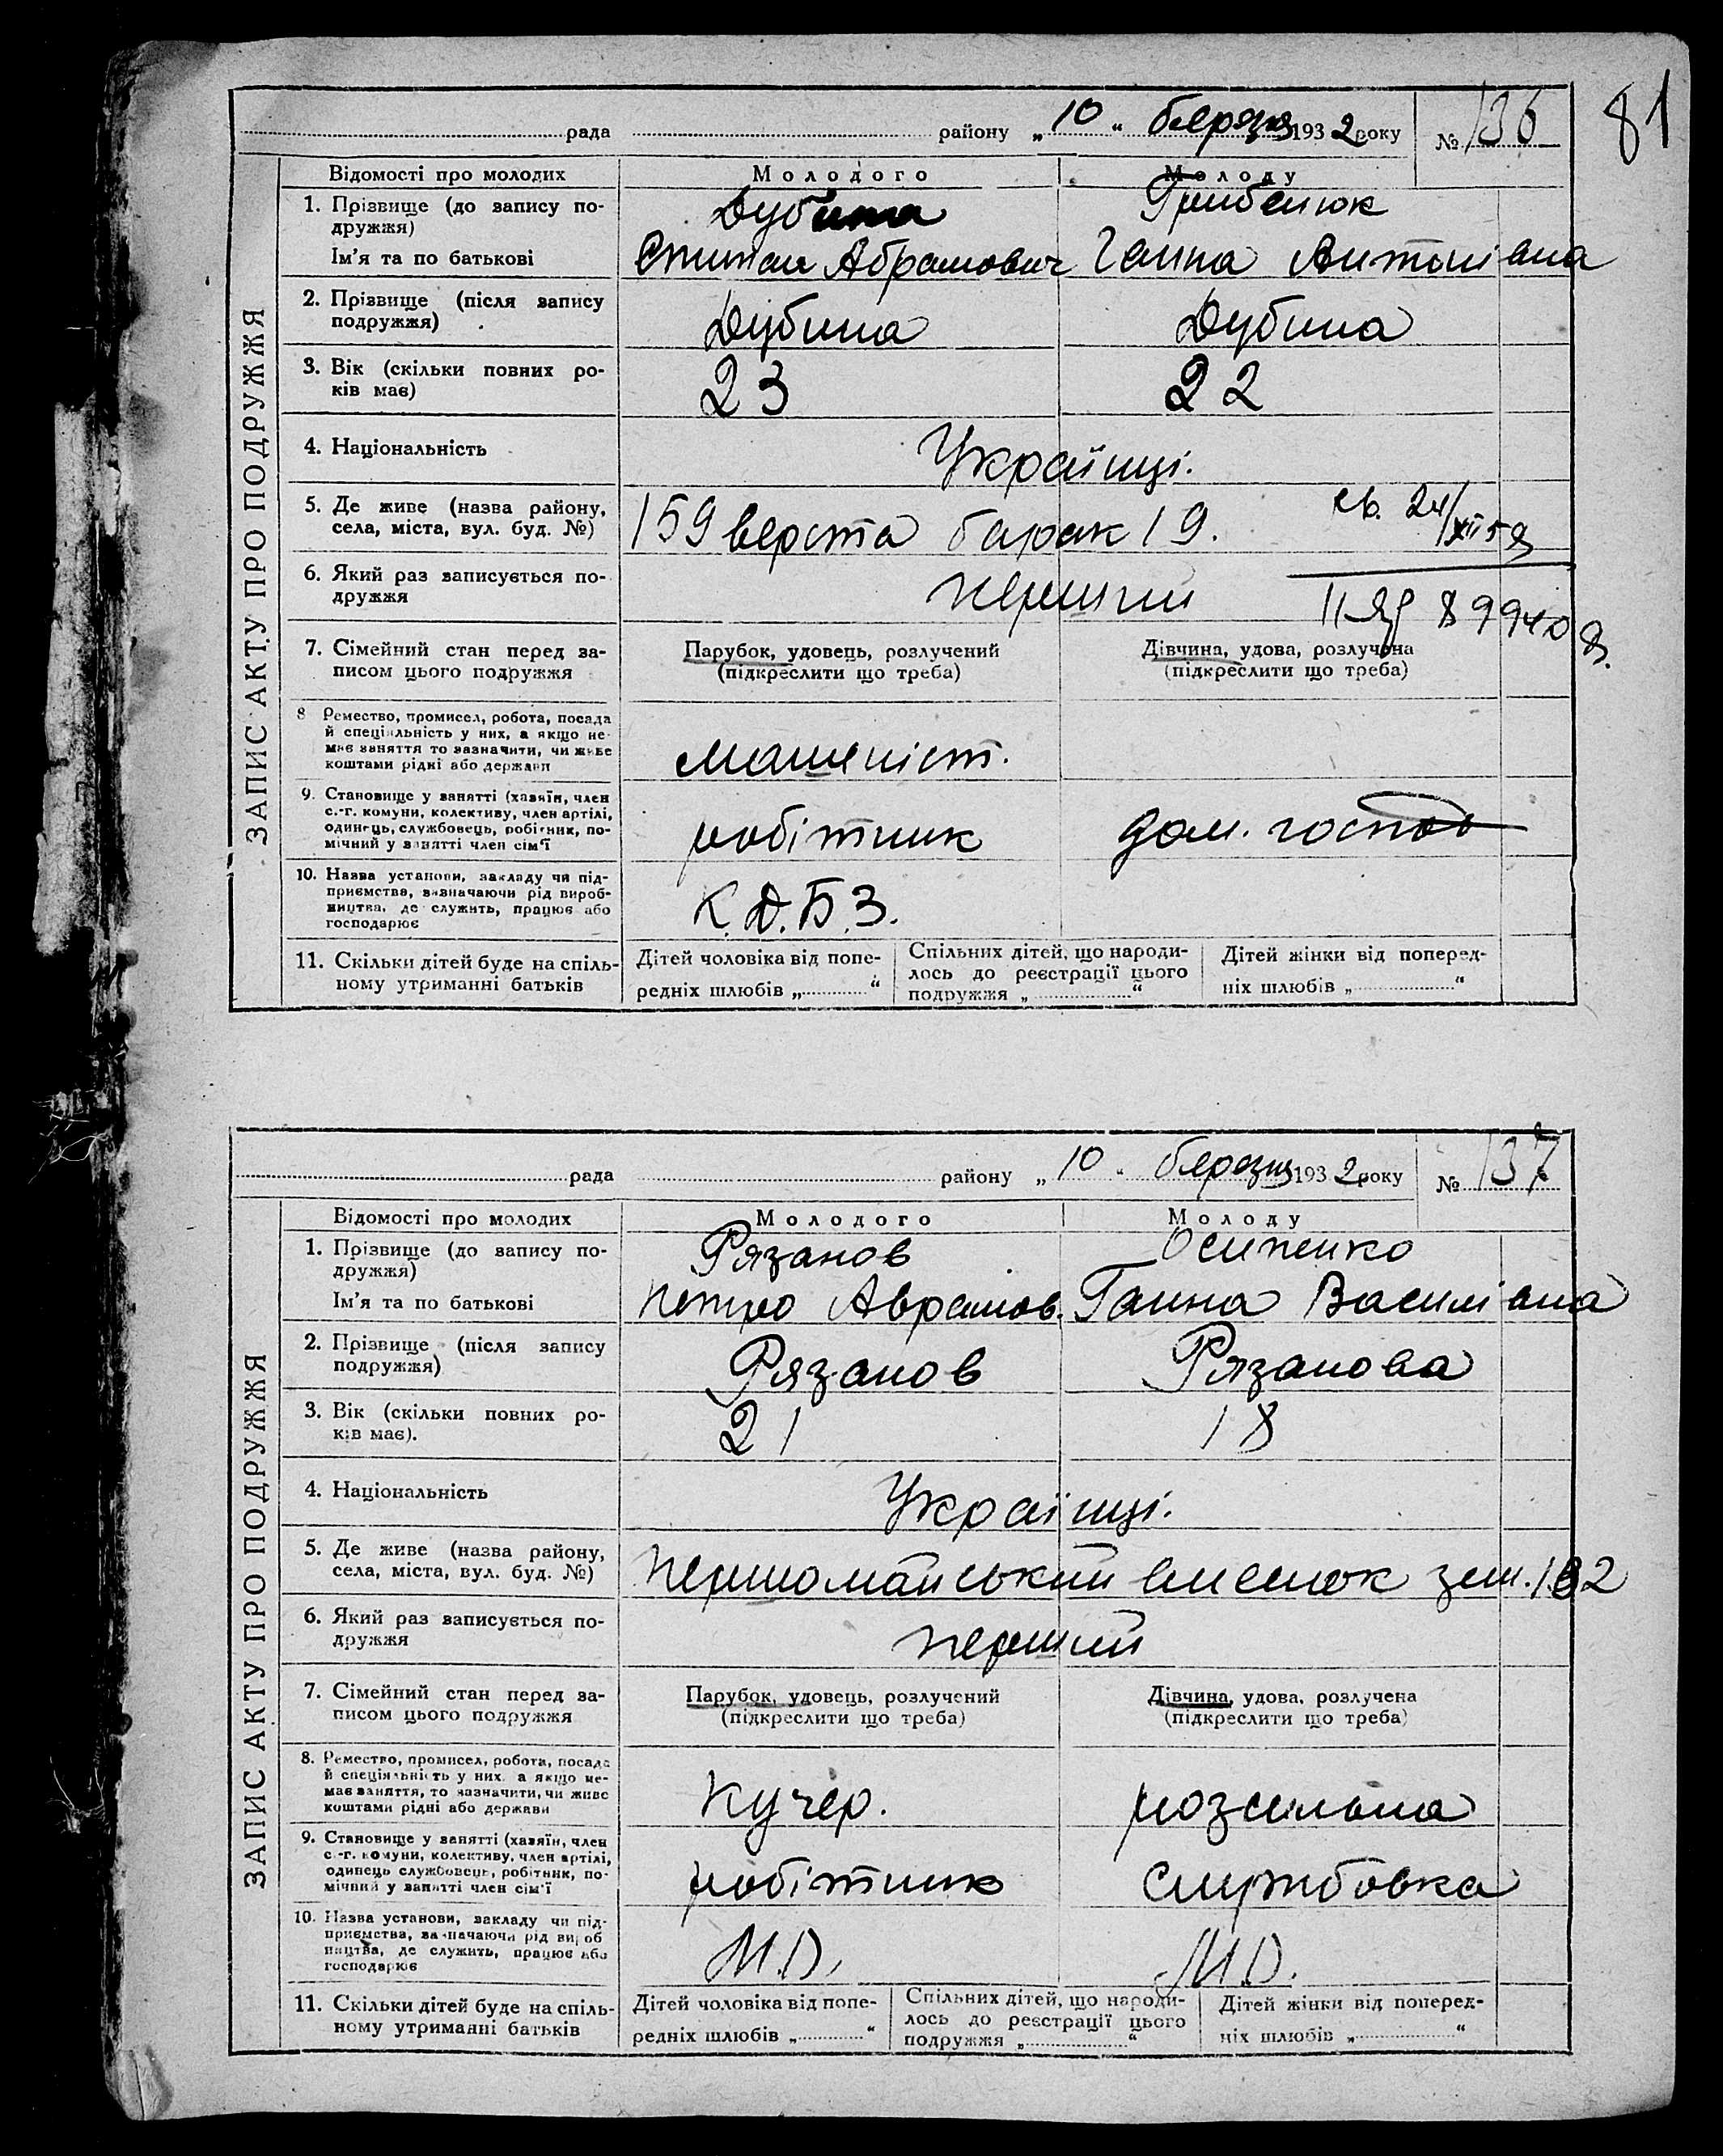 81
рада району „10“ березня 1932 року № 136
ЗАПИС АКТУ ПРО ПОДРУЖЖЯ
Відомості про молодих Молодого Молоду
1. Прізвище (до запису по-
дружжя)
Дубина Грибенюк
Ім'я та по батькові
Степан Абрамович Ганна Антонівна
2. Прізвище (після запису
подружжя)
Дубина Дубина
3. Вік (скільки повних ро-
ків має)
23 22
4. Національність
Українці.
5. Де живе (назва району,
села, міста, вул. буд. №)
159 верста барак 19.
6. Який раз записується по-
дружжя
перший
7. Сімейний стан перед за-
писом цього подружжя
Парубок, удовець, розлучений
(підкреслити що треба)
Дівчина, удова, розлучена
(підкреслити що треба)
8 Ремество, промисел, робота, посада
й спеціяльність у них, а якщо не-
має заняття то зазначити, чи живе
коштами рідні або держави
машиніст.
9. Становище у занятті (хазяїн, член
с.-г. комуни, колективу, член артілі,
одинець, службовець, робітник, по-
мічний у занятті член сім'ї
робітник дом. господ
10. Назва установи, закладу чи під-
приємства, зазначаючи рід вироб-
ництва, де служить, працює або
господарює
К.Д.Б.З.
11. Скільки дітей буде на спіль-
ному утриманні батьків
Дітей чоловіка від попе-
редніх шлюбів „ “
Спільних дітей, що народи-
лось до реєстрації цього
подружжя „ “
Дітей жінки від поперед-
ніх шлюбів „ “
рада району „10“ березня 1932 року № 137
ЗАПИС АКТУ ПРО ПОДРУЖЖЯ
Відомості про молодих Молодого Молоду
1. Прізвище (до запису по-
дружжя)
Рязанов Осипенко
Ім'я та по батькові
Петро Аврамов. Ганна Василівна
2. Прізвище (після запису
подружжя)
Рязанов Рязанова
3. Вік (скільки повних ро-
ків має).
21 18
4. Національність
Українці.
5. Де живе (назва району,
села, міста, вул. буд. №)
Першомайський виселок зем. 182
6. Який раз записується по-
дружжя
перший
7. Сімейний стан перед за-
писом цього подружжя
Парубок, удовець, розлучений
(підкреслити що треба)
Дівчина, удова, розлучена
(підкреслити що треба)
8. Ремество, промисел, робота, посада
й спеціяльність у них, а якщо не-
має заняття, то зазначити, чи живе
коштами рідні або держави
Кучер. розсильна
9. Становище у занятті (хазяїн, член
с.-г. комуни, колективу, член артілі,
одинець службовець, робітник, по-
мічний у занятті член сім'ї
робітник службовка
10. Назва установи, закладу чи під-
приємства, зазначаючи рід вироб
ництва, де служить, працює або
господарює
М.D. М.D.
11. Скільки дітей буде на спіль-
ному утриманні батьків
Дітей чоловіка від попе-
редніх шлюбів „ “
Спільних дітей, що народи-
лось до реєстрації цього
подружжя „ “
Дітей жінки від поперед-
ніх шлюбів „ “